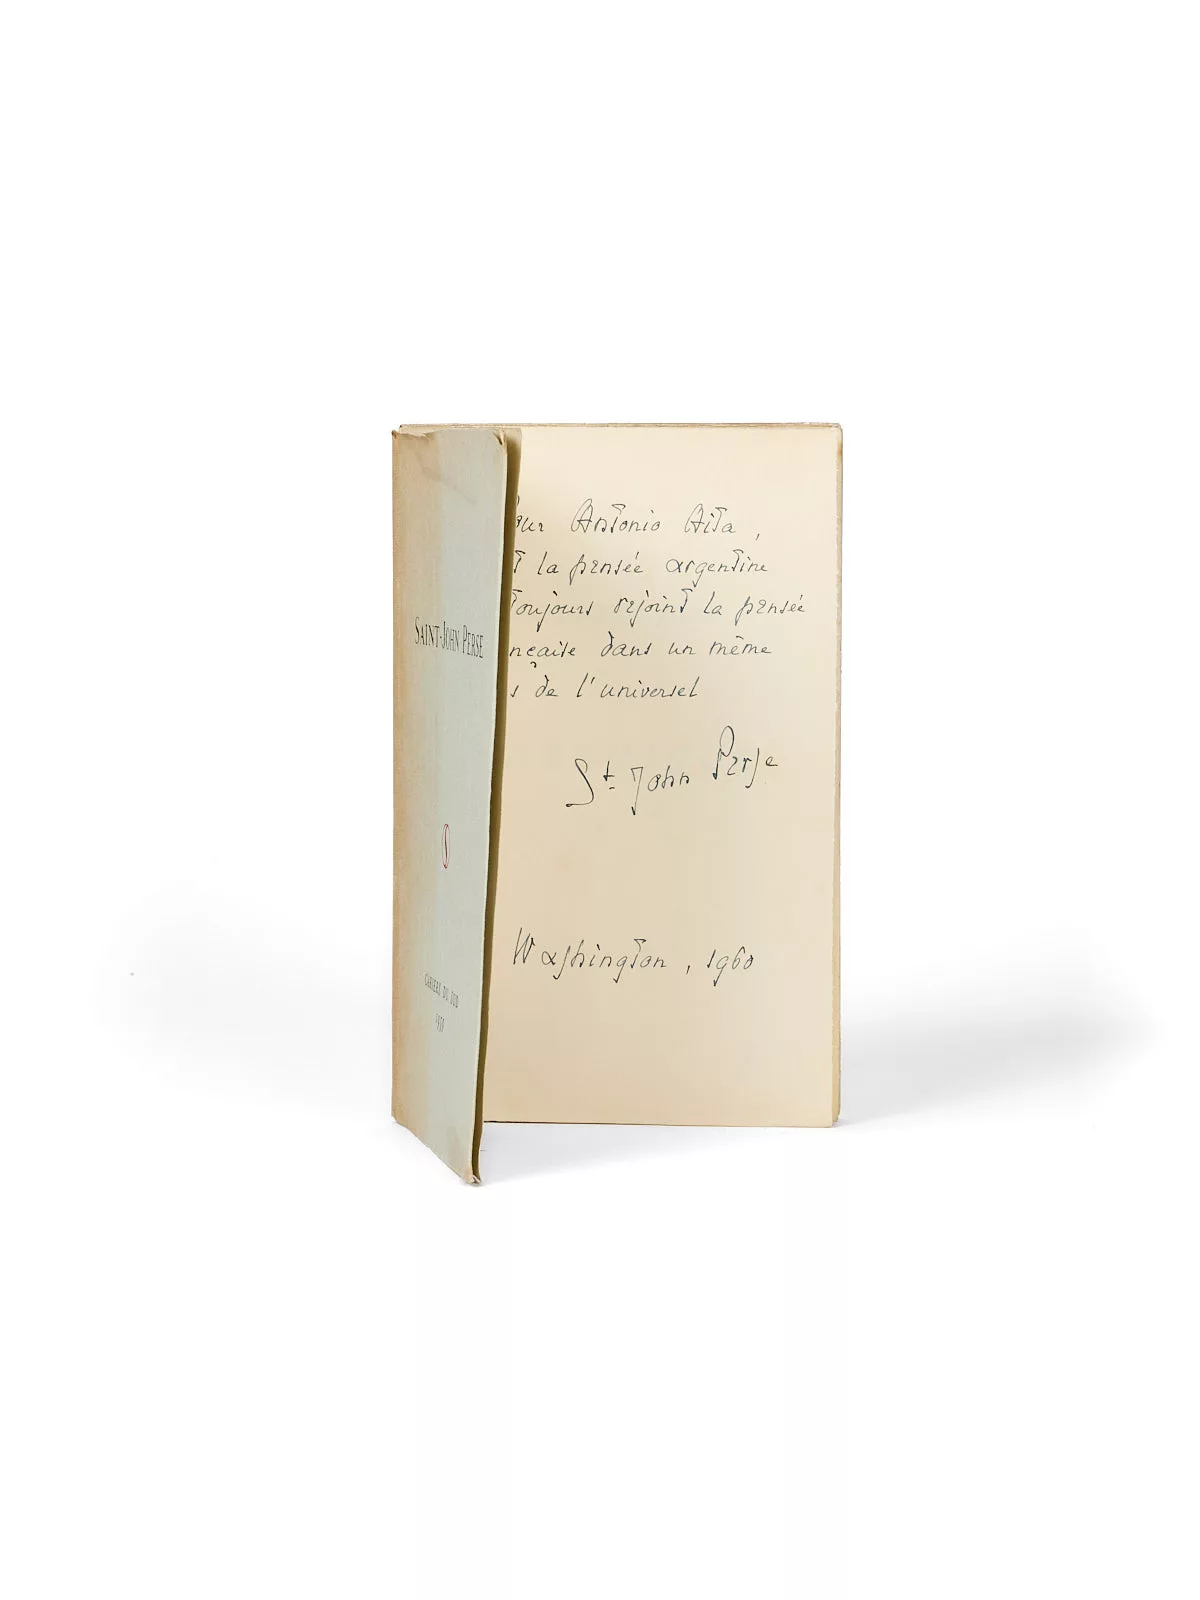 SAINT-JOHN PERSE
CAHIERS DU SUD
Antonio Aita,
la pensée argentine
toujours rejoint la pensée
nçaise dans un même
s de l'universel
St. John Perse
Washington, 1960